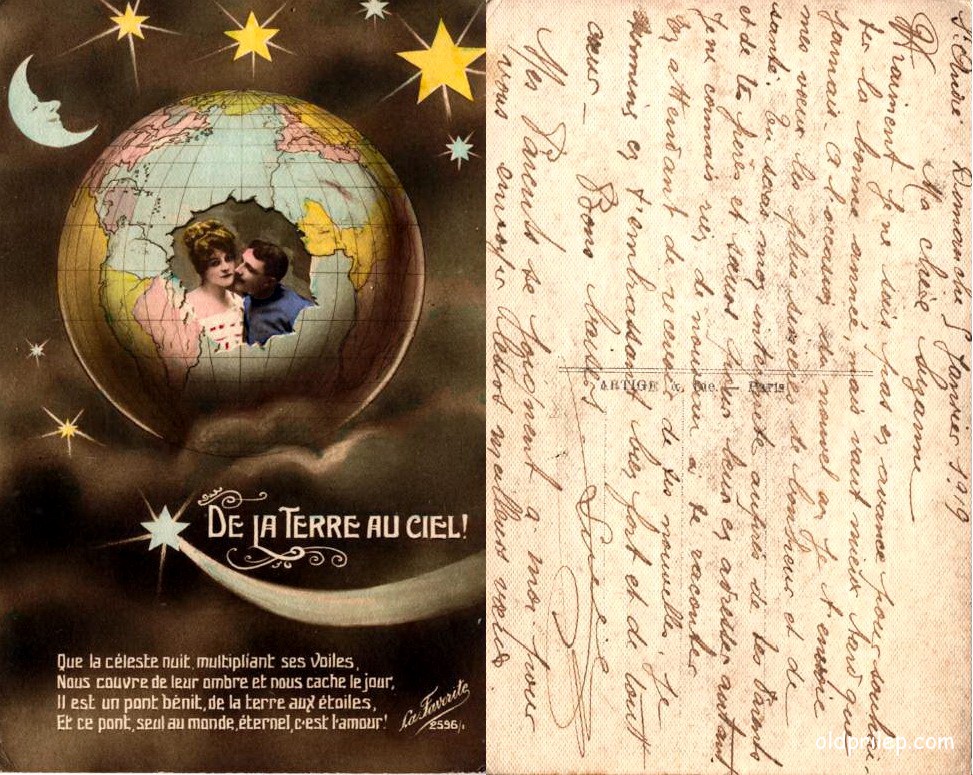 DE LA TERRE AU CIEL!
Que la céleste nuit, multipliant ses Voiles,
Nous couvre de leur ombre et nous cache le jour,
Il est un pont bénit, de la terre aux étoiles,
Et ce pont, seul au monde, éternel, c'est l'amour!
La Favorite
2596/1
Dimanche 5 Janvier 1919
Ma chère Suzanne
Vraiment je ne suis pas en avance pour souhai
ter la bonne année, mais vaut mieux tard que
jamais a l'occasion du nouvel an je t'envoie
mes voeux les plus sincères de bonheur et de
santé. En soies mon interprète auprès de tes Parents
et de tes frères et soeurs pour tous en adresser autant
rien, le mieux a te raconter
En attendant de tes nouvelles, je
termine en t'embrassant bien fort et de tout
coeur - Bons baisers
Mes Parents se joignent a moi pour
vous envoyer leurs meilleurs voeux
ARTIGE & Cie. - Paris
oldprilep.com